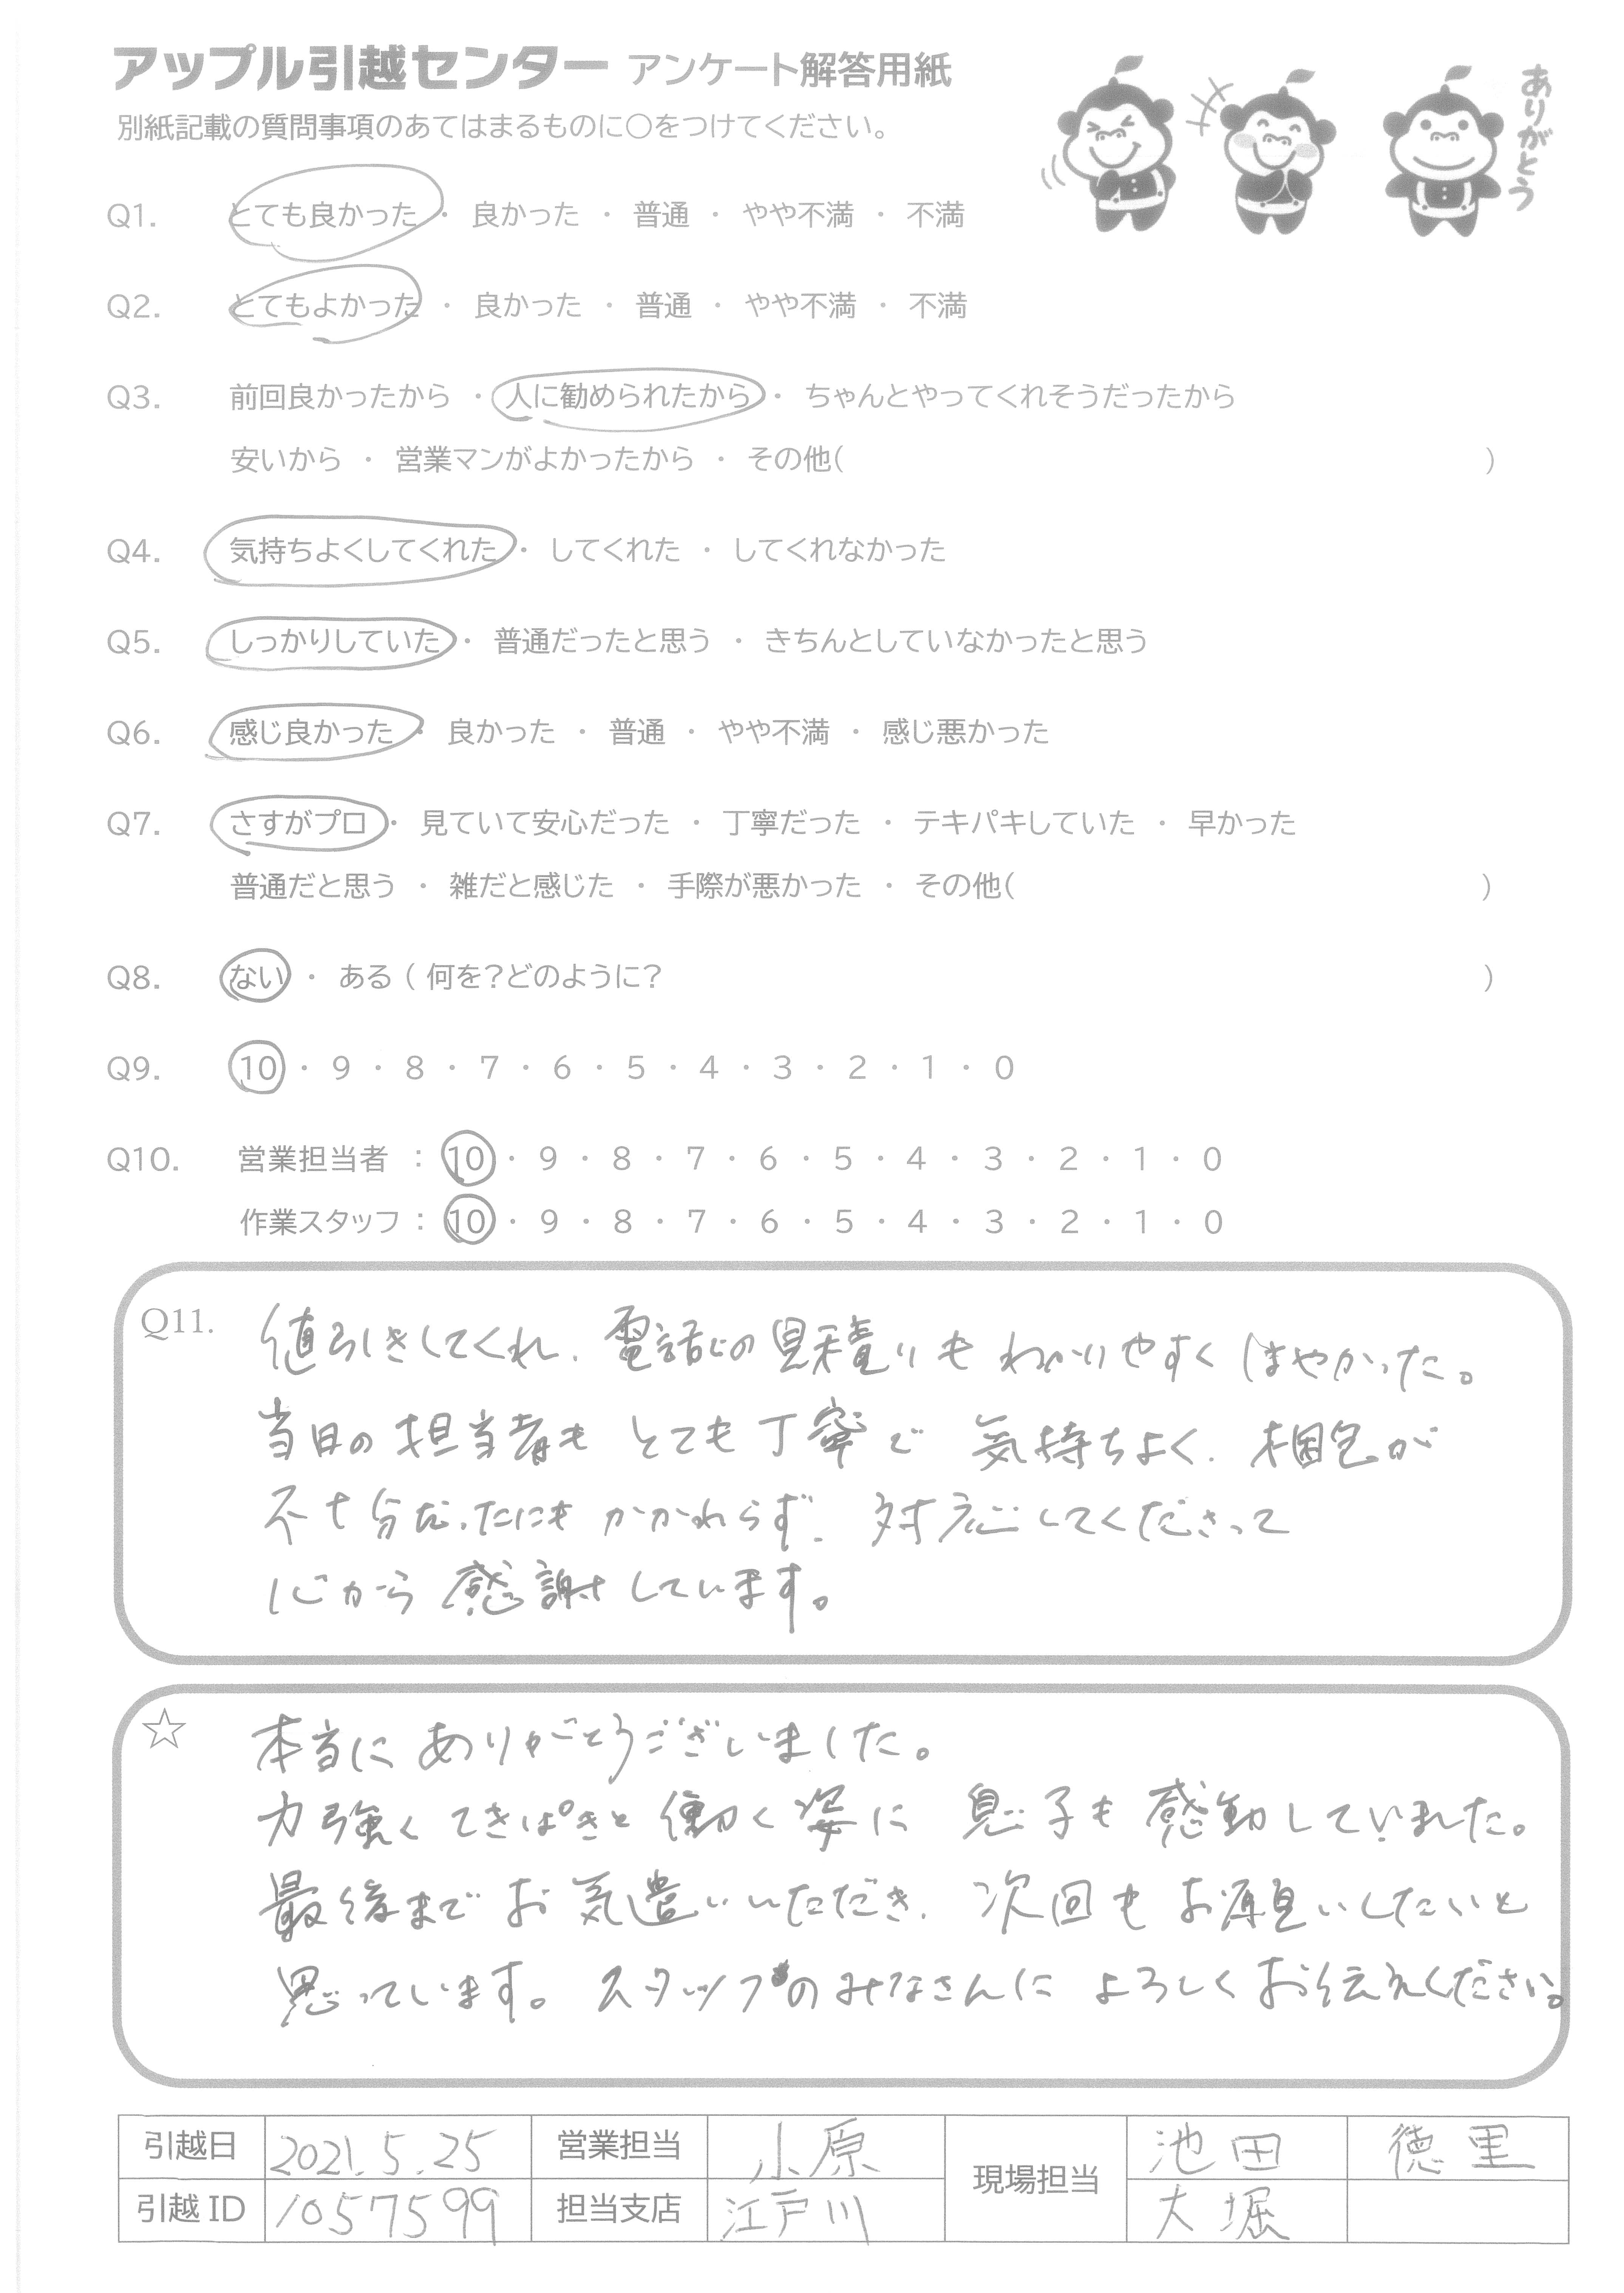 アップル引越センター アンケート解答用紙
別紙記載の質問事項のあてはまるものに○をつけてください。
ありがとう
Q1. とても良かった ・ 良かった ・ 普通 ・ やや不満 ・ 不満
Q2. とてもよかった ・ 良かった ・ 普通 ・ やや不満 ・ 不満
Q3. 前回良かったから ・ 人に勧められたから ・ ちゃんとやってくれそうだったから
安いから ・ 営業マンがよかったから ・ その他( )
Q4. 気持ちよくしてくれた ・ してくれた ・ してくれなかった
Q5. しっかりしていた ・ 普通だったと思う ・ きちんとしていなかったと思う
Q6. 感じ良かった ・ 良かった ・ 普通 ・ やや不満 ・ 感じ悪かった
Q7. さすがプロ ・ 見ていて安心だった ・ 丁寧だった ・ テキパキしていた ・ 早かった
普通だと思う ・ 雑だと感じた ・ 手際が悪かった ・ その他( )
Q8. ない ・ ある ( 何を?どのように? )
Q9. 10 ・ 9 ・ 8 ・ 7 ・ 6 ・ 5 ・ 4 ・ 3 ・ 2 ・ 1 ・ 0
Q10. 営業担当者 : 10 ・ 9 ・ 8 ・ 7 ・ 6 ・ 5 ・ 4 ・ 3 ・ 2 ・ 1 ・ 0
作業スタッフ : 10 ・ 9 ・ 8 ・ 7 ・ 6 ・ 5 ・ 4 ・ 3 ・ 2 ・ 1 ・ 0
Q11. 値引きしてくれ、電話での見積りもわかりやすくはやかった。
当日の担当者もとても丁寧で気持ちよく、梱包が
不十分だったにもかかわらず、対応してくださって
心から感謝しています。
☆ 本当にありがとうございました。
力強くてきぱきと働く姿に息子も感動していました。
最後までお気遣いいただき、次回もお願いしたいと
思っています。スタッフのみなさんによろしくお伝えください。
引越日 2021.5.25 営業担当 小原 現場担当 池田 徳里
引越ID 1057599 担当支店 江戸川 大堀